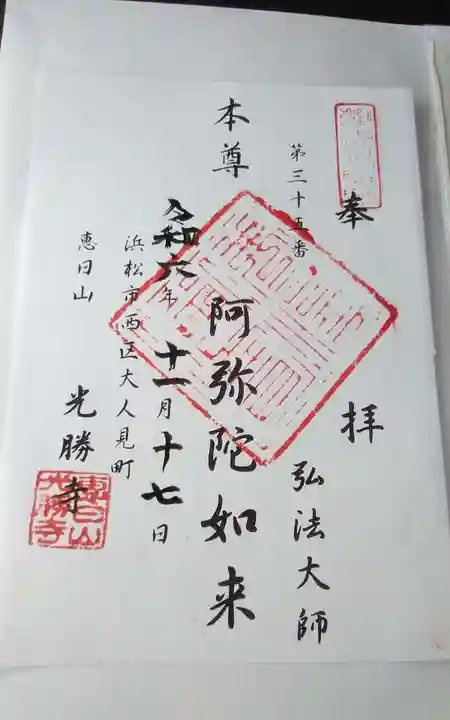 奉拝
第三十五番 弘法大師
本尊 阿弥陀如来
令和六年十一月十七日
浜松市西区大人見町
恵日山 光勝寺
恵日山
光勝寺